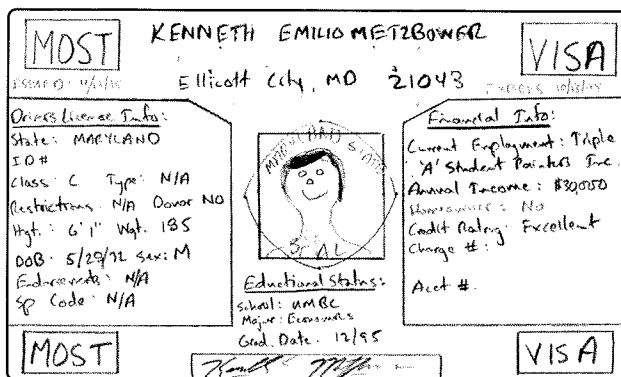 MOST
KENNETH EMILIO METZBOWER
VISA
Ellicott City, MD 21043
Drivers License Info:
State: MARYLAND
I.D #
Class C Type: N/A
Restrictions: N/A Donor NO
Hgt.: 6'1" Wgt. 185
DOB: 5/29/72 Sex: M
Endorsements: N/A
Sp Code: N/A
MARYLAND STATE
SEAL
Eductional Status:
School: UMBC
Major: Economics
Grad. Date. 12/95
Financial Info:
Current Employment: Triple
'A' Student Painters Inc.
Annual Income: $30,000
Homeowner: No
Credit Rating: Excellent
Charge #:
Acct #.
MOST
VISA